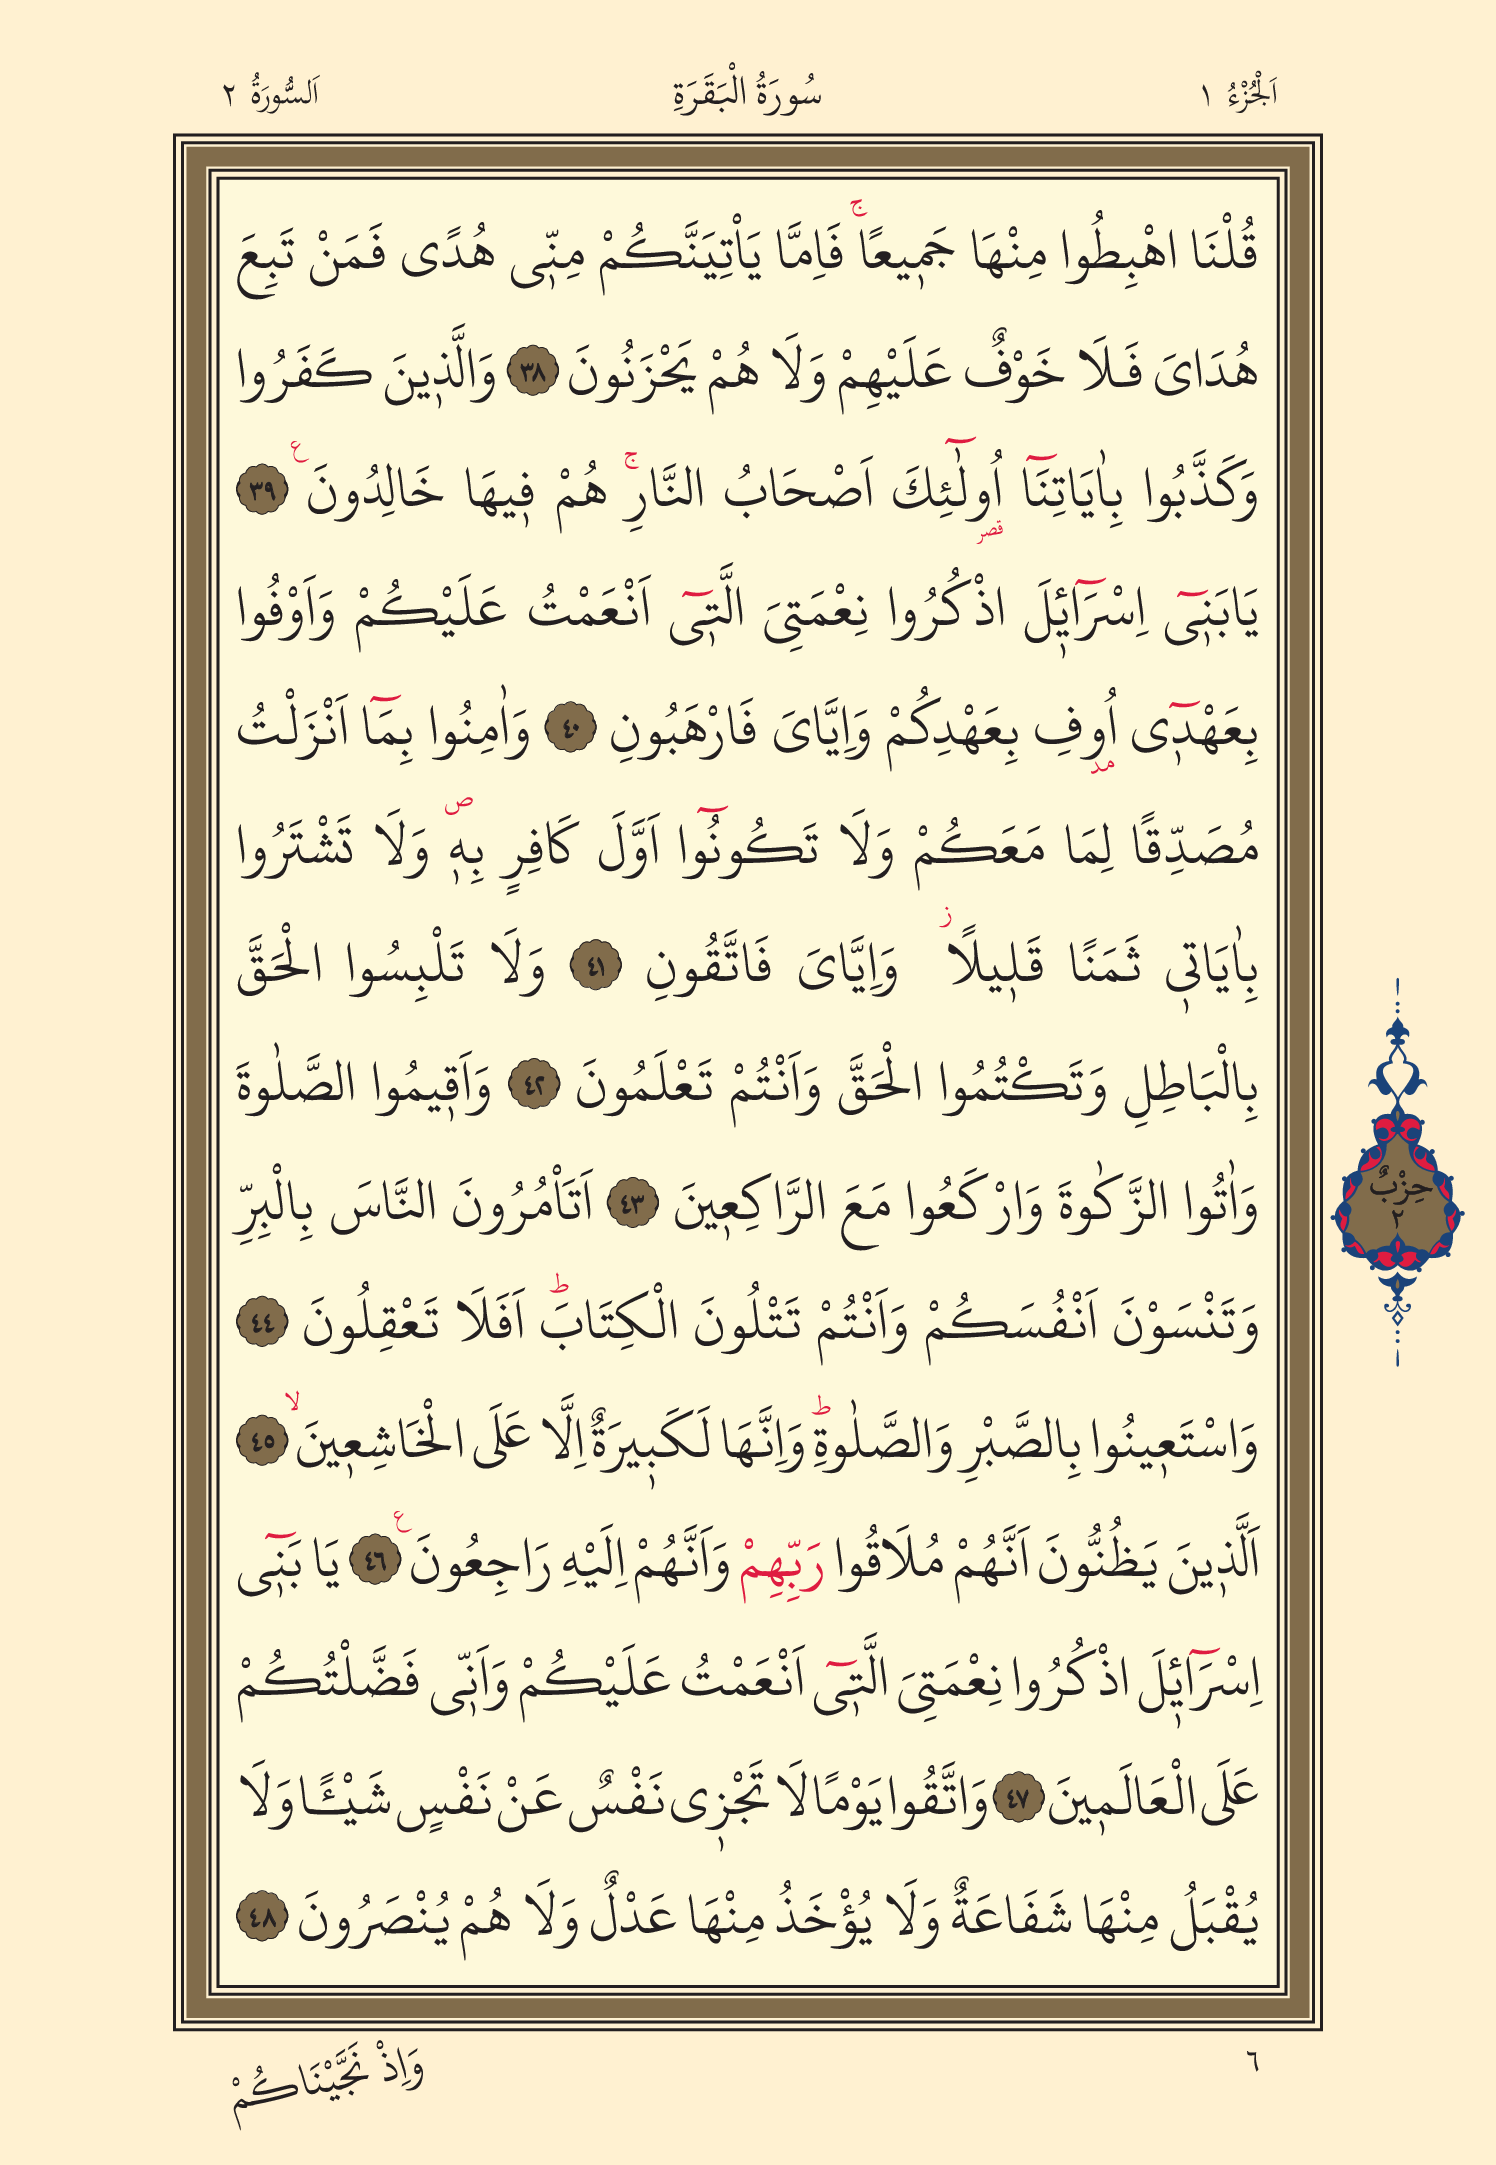 اَلْجُزْءُ ١
سُورَةُ الْبَقَرَةِ
اَلسُّورَةُ ٢
قُلْنَا اهْبِطُوا مِنْهَا جَم۪يعًاۚ فَاِمَّا يَاْتِيَنَّكُمْ مِنّ۪ى هُدًى فَمَنْ تَبِعَ
هُدَاىَ فَلَا خَوْفٌ عَلَيْهِمْ وَلَا هُمْ يَحْزَنُونَ ٣٨ وَالَّذ۪ينَ كَفَرُوا
وَكَذَّبُوا بِاٰيَاتِنَٓا اُو۬لٰٓئِكَ اَصْحَابُ النَّارِۚ هُمْ ف۪يهَا خَالِدُونَ ع ٣٩
قصر
يَابَن۪ٓى اِسْرَٓائ۪لَ اذْكُرُوا نِعْمَتِىَ الَّت۪ٓى اَنْعَمْتُ عَلَيْكُمْ وَاَوْفُوا
بِعَهْد۪ٓى اُوفِ بِعَهْدِكُمْ وَاِيَّاىَ فَارْهَبُونِ ٤٠ وَاٰمِنُوا بِمَٓا اَنْزَلْتُ
مد
مُصَدِّقًا لِمَا مَعَكُمْ وَلَا تَكُونُٓوا اَوَّلَ كَافِرٍ بِه۪ۖ وَلَا تَشْتَرُوا
بِاٰيَات۪ى ثَمَنًا قَل۪يلًا ز وَاِيَّاىَ فَاتَّقُونِ ٤١ وَلَا تَلْبِسُوا الْحَقَّ
بِالْبَاطِلِ وَتَكْتُمُوا الْحَقَّ وَاَنْتُمْ تَعْلَمُونَ ٤٢ وَاَق۪يمُوا الصَّلٰوةَ
وَاٰتُوا الزَّكٰوةَ وَارْكَعُوا مَعَ الرَّاكِع۪ينَ ٤٣ اَتَاْمُرُونَ النَّاسَ بِالْبِرِّ
وَتَنْسَوْنَ اَنْفُسَكُمْ وَاَنْتُمْ تَتْلُونَ الْكِتَابَۜ اَفَلَا تَعْقِلُونَ ٤٤
وَاسْتَع۪ينُوا بِالصَّبْرِ وَالصَّلٰوةِۜ وَاِنَّهَا لَكَب۪يرَةٌ اِلَّا عَلَى الْخَاشِع۪ينَۙ ٤٥
اَلَّذ۪ينَ يَظُنُّونَ اَنَّهُمْ مُلَاقُوا رَبِّهِمْ وَاَنَّهُمْ اِلَيْهِ رَاجِعُونَ ع ٤٦ يَا بَن۪ٓى
اِسْرَٓائ۪لَ اذْكُرُوا نِعْمَتِىَ الَّت۪ٓى اَنْعَمْتُ عَلَيْكُمْ وَاَنّ۪ى فَضَّلْتُكُمْ
عَلَى الْعَالَم۪ينَ ٤٧ وَاتَّقُوا يَوْمًا لَا تَجْز۪ى نَفْسٌ عَنْ نَفْسٍ شَيْـًٔا وَلَا
يُقْبَلُ مِنْهَا شَفَاعَةٌ وَلَا يُؤْخَذُ مِنْهَا عَدْلٌ وَلَا هُمْ يُنْصَرُونَ ٤٨
حِزْبٌ
٢
٦
وَاِذْ نَجَّيْنَاكُمْ